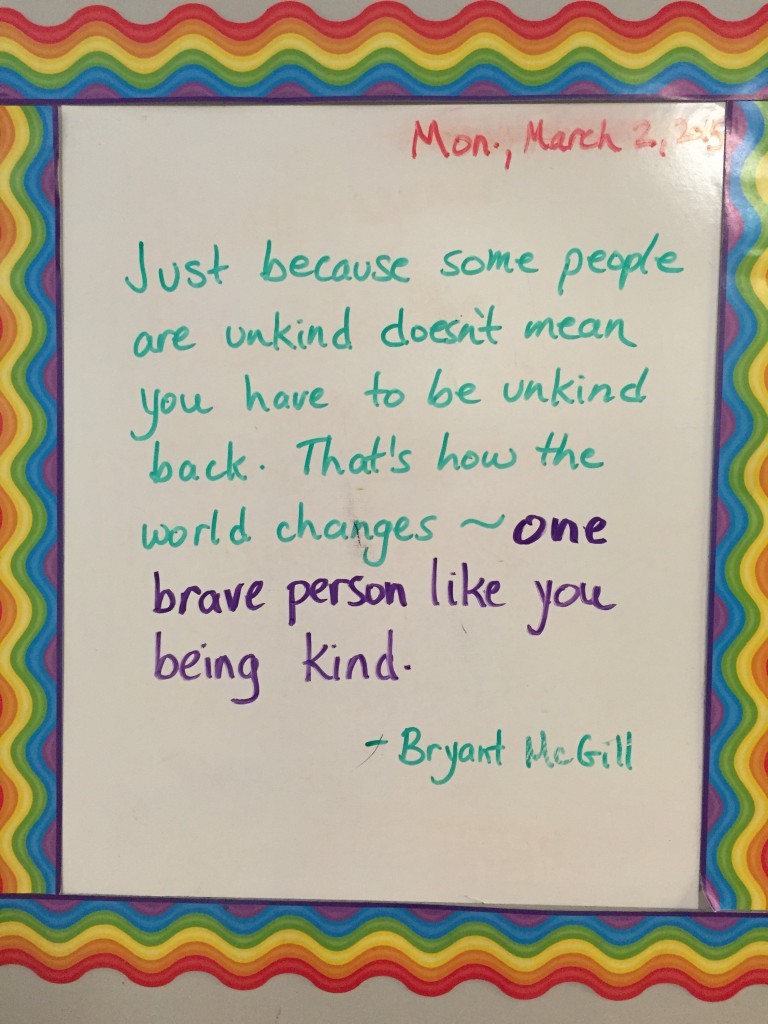 Mon., March 2, 2015
Just because some people
are unkind doesn't mean
you have to be unkind
back. That's how the
world changes ~ one
brave person like you
being kind.
- Bryant McGill